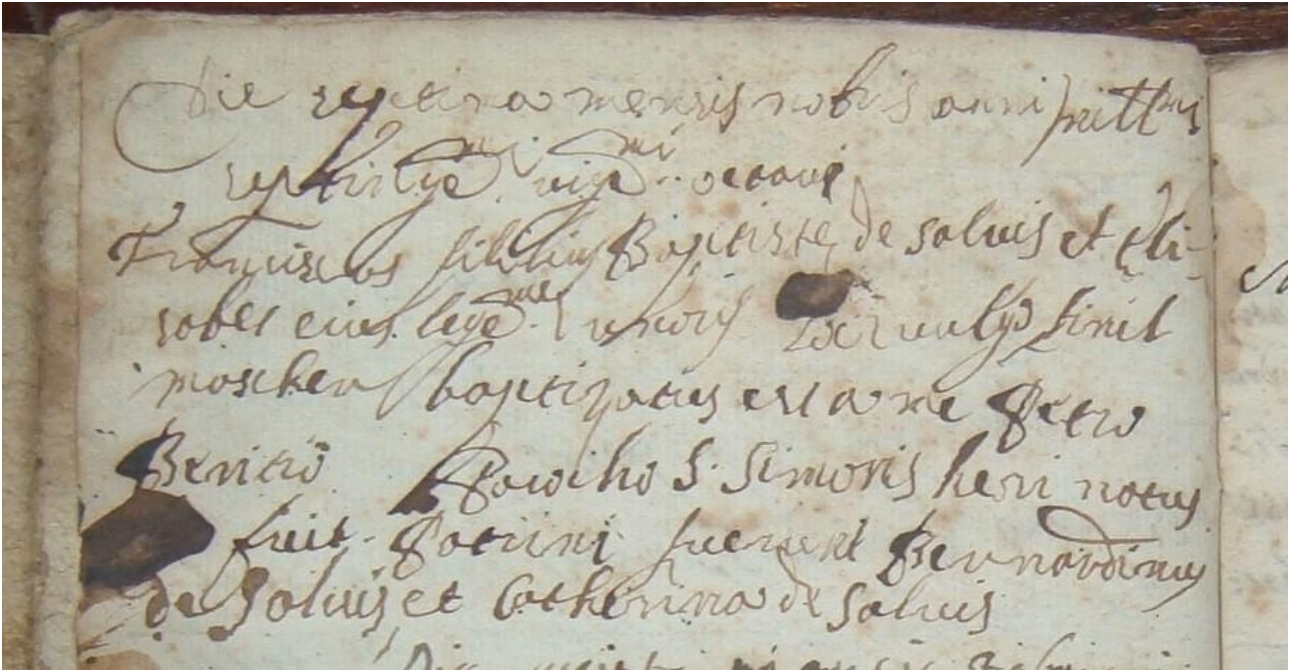 Die septima mensis nobris anni mill.mi
septinge.mi vige.mi octavi
Franciscus filius Baptiste de Salvis et Eli-
sabet eius lege.me uxoris simil
baptizatus est a me Petro
Benitio Parocho S. Simonis heri natus
fuit. Patrini fuerunt Bernardinus
de Salvis et Catherina de Salvis
Die